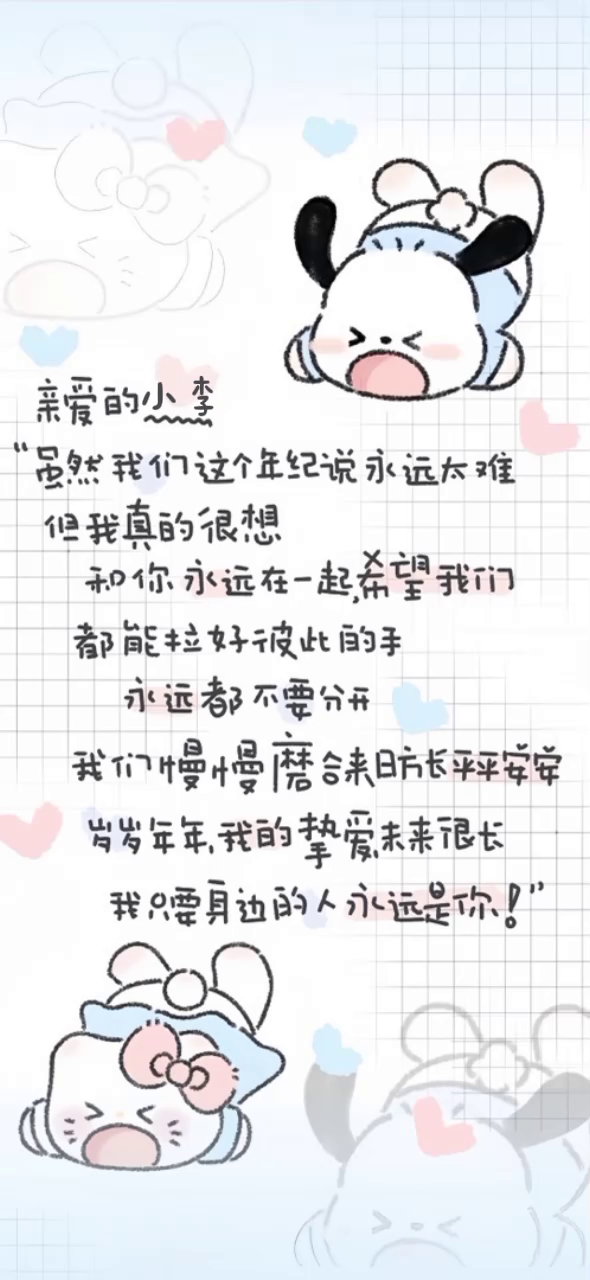 亲爱的小李
“虽然我们这个年纪说永远太难
但我真的很想
和你永远在一起,希望我们
都能拉好彼此的手
永远都不要分开
我们慢慢磨合来日方长平平安安
岁岁年年,我的挚爱,未来很长
我只要身边的人永远是你!”